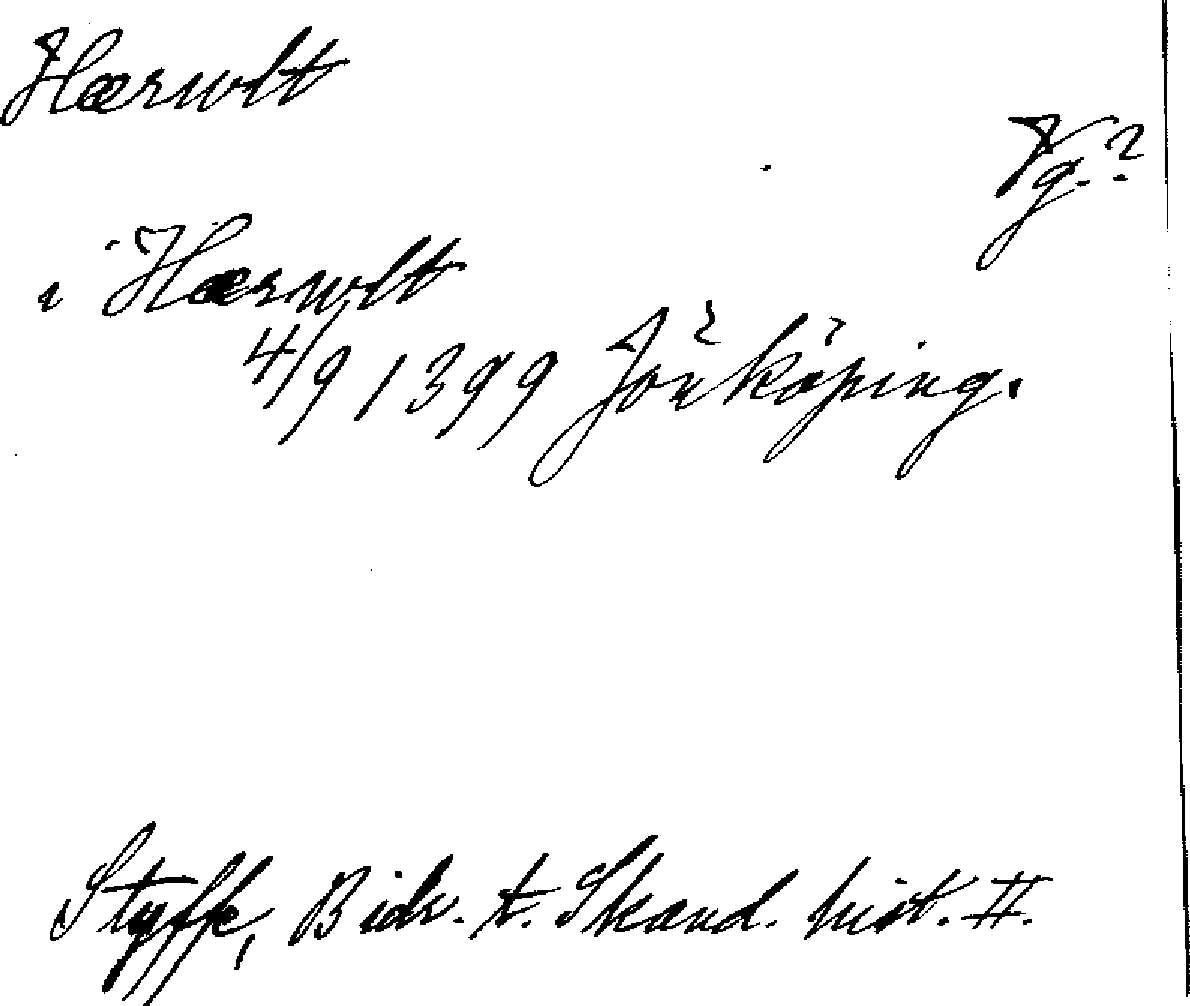 Hærwlt
Vg.?
i Hærwlt
4/9 1399 Jönköping.
Styffe, Bidr. t. Skand. hist. II.